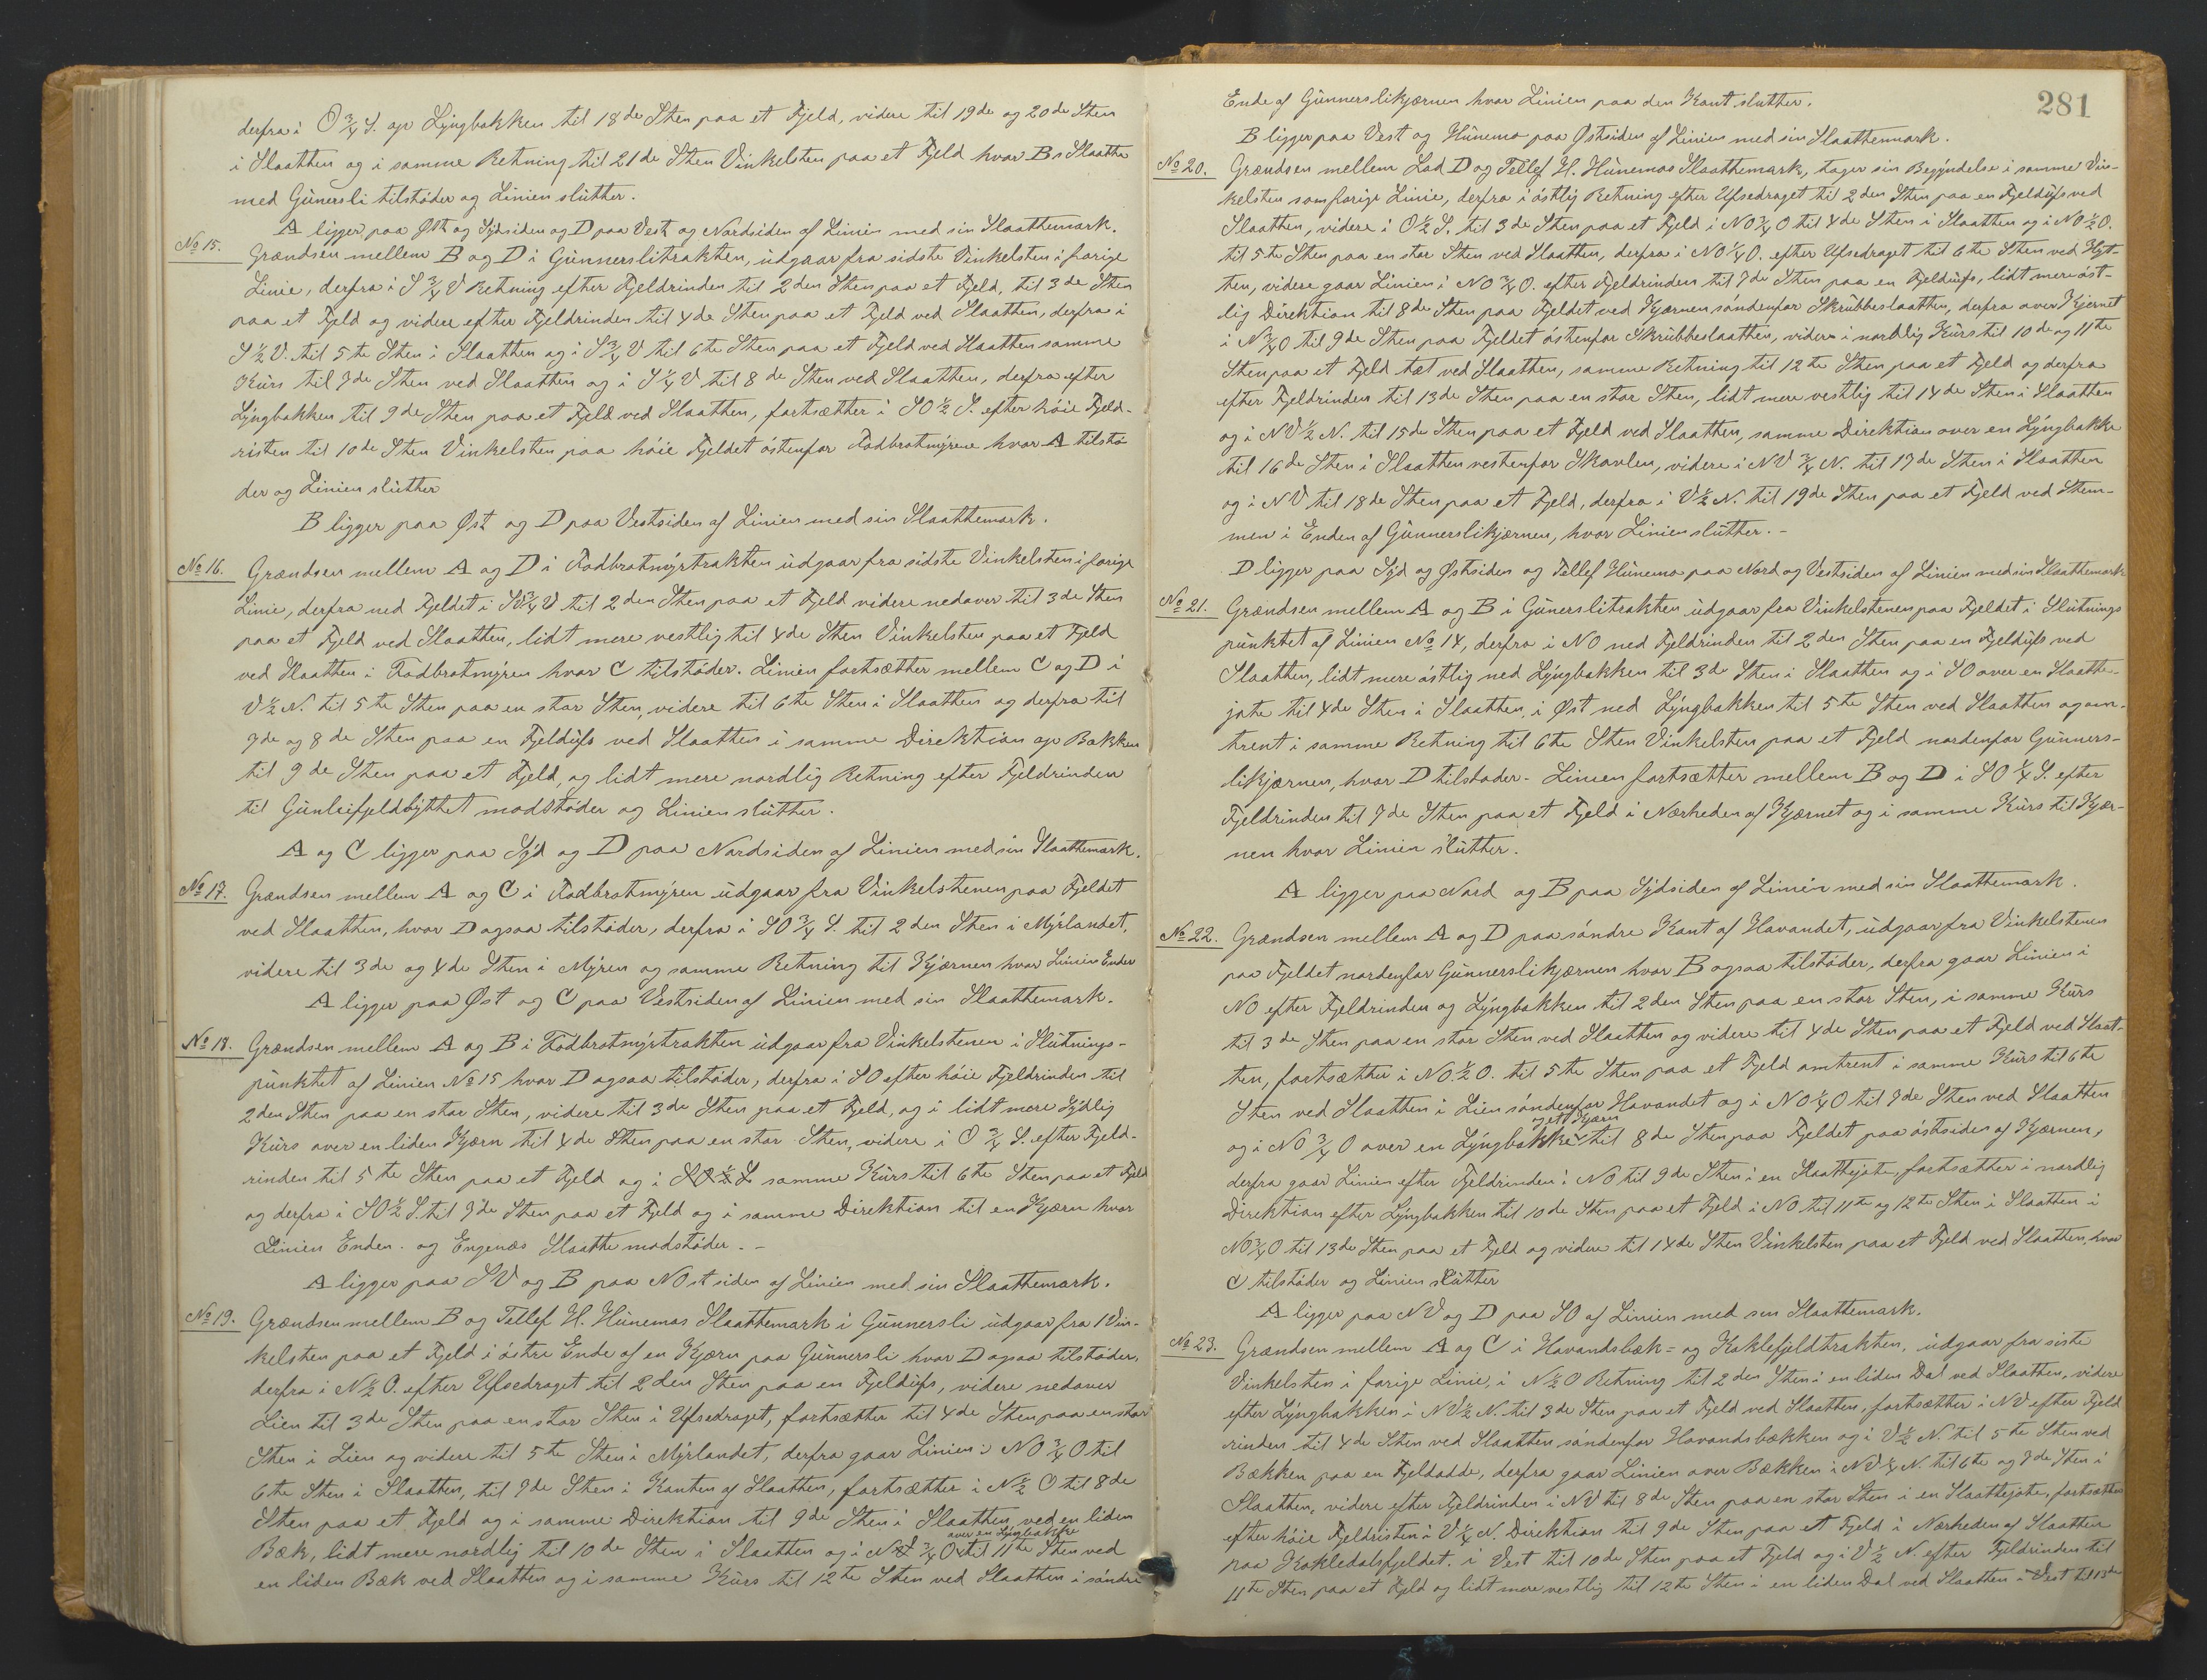 derfra i O ¾ S. op Lyngbakken til 18de Sten paa et Fjeld, videre til 19de og 20de Sten
i Slaatten og i samme Retning til 21de Sten Vinkelsten paa et Fjeld hvor B's Slaatte
med Gunersli tilstøder og Linien slutter.
A ligger paa Øst og Sydsiden og D paa Vest og Nordsiden af Linien med sin Slaattemark.
No 15. Grændsen mellem B og D i Gunnerslitrakten, udgaar fra sidste Vinkelsten i forige
Linie, derfra i S ¾ V Retning efter Fjeldrinden til 2den Sten paa et Fjeld, til 3de Sten
paa et Fjeld og videre efter Fjeldrinden til 4de Sten paa et Fjeld ved Slaatten, derfra i
S ½ V. til 5te Sten i Slaatten og i S ¾ V til 6te Sten paa et Fjeld ved Slaatten samme
Kurs til 7de Sten ved Slaatten og i S ¼ V til 8de Sten ved Slaatten, derfra efter
Lyngbakken til 9de Sten paa et Fjeld ved Slaatten, fortsætter i SO ½ S. efter høie Fjeld-
risten til 10de Sten Vinkelsten paa høie Fjeldet østenfor Fodbrotmyrene hvor A tilstø
der og Linien slutter
B ligger paa Øst og D paa Vestsiden af Linien med sin Slaattemark.
No 16. Grændsen mellem A og D i Fodbrotmyrtrakten udgaar fra sidste Vinkelsten i forige
Linie, derfra ned Fjeldet i SV ¾ V til 2den Sten paa et Fjeld videre nedover til 3de Sten
paa et Fjeld ved Slaatten, lidt mere vestlig til 4de Sten Vinkelsten paa et Fjeld
ved Slaatten i Fodbrotmyren hvor C tilstøder. Linien fortsætter mellem C og D i
V ½ N. til 5te Sten paa en stor Sten, videre til 6te Sten i Slaatten og derfra til
7de og 8de Sten paa en Fjeldufs ved Slaatten i samme Direktion op Bakken
til 9de Sten paa et Fjeld, og lidt mere nordlig Retning efter Fjeldrinden
til Gunleifjeldbyttet modstøder og Linien slutter.
A og C ligger paa Syd og D paa Nordsiden af Linien med sin Slaattemark.
No 17. Grændsen mellem A og C i Fodbrotmyren udgaar fra Vinkelstenen paa Fjeldet
ved Slaatten, hvor D ogsaa tilstøder, derfra i SO ¾ S. til 2den Sten i Myrlandet,
videre til 3de og 4de Sten i Myren og samme Retning til Kjærnen hvor Linien Ender
A ligger paa Øst og C paa Vestsiden af Linien med sin Slaattemark.
No 18. Grændsen mellem A og B i Fodbrotmyrtrakten udgaar fra Vinkelstenen i Slutnings-
punktet af Linien No 15 hvor D ogsaa tilstøder, derfra i SO efter høie Fjeldrinden til
2den Sten paa en stor Sten, videre til 3de Sten paa et Fjeld, og i lidt mere Sydlig
Kurs over en liden Kjærn til 4de Sten paa en stor Sten, videre i O ¾ S. efter Fjeld-
rinden til 5te Sten paa et Fjeld og i samme Kurs til 6te Sten paa et Fjeld
og derfra i SO ½ S. til 7de Sten paa et Fjeld og i samme Direktion til en Kjærn hvor
Linien Ender. og Engenæs Slaatte modstøder. -
A ligger paa SV og B paa NOstsiden af Linien med sin Slaattemark.
No 19. Grændsen mellem B og Tellef H. Hunemos Slaattemark i Gunnersli udgaar fra 1 Vin-
kelsten paa et Fjeld i østre Ende af en Kjærn paa Gunnersli hvor D ogsaa tilstøder,
derfra i N ½ O. efter Ufsedraget til 2den Sten paa en Fjeldufs, videre nedover
Lien til 3de Sten paa en stor Sten i Ufsedraget, fortsætter til 4de Sten paa en stor
Sten i Lien og videre til 5te Sten i Myrlandet, derfra gaar Linien i NO ¾ O til
6te Sten i Slaatten, til 7de Sten i Kanten af Slaatten, fortsætter i N ½ O til 8de
Sten paa et Fjeld og i samme Direktion til 9de Sten i Slaatten ved en liden
over en Lyngbakke
Bæk, lidt mere nordlig til 10de Sten i Slaatten og i N ¾ O til 11te Sten ved
en liden Bæk ved Slaatten og i samme Kurs til 12te Sten ved Slaatten i søndre
281
Ende af Gunnerslikjærnen hvor Linien paa den Kant slutter.
B ligger paa Vest og Hunemo paa Østsiden af Linien med sin Slaattemark.
No 20. Grændsen mellem Lod D og Tellef H. Hunemos Slaattemark, tager sin Begyndelse i samme Vin-
kelsten som forige Linie, derfra i østlig Retning efter Ufsedraget til 2den Sten paa en Fjeldufs ved
Slaatten, videre i O ½ S. til 3de Sten paa et Fjeld i NO ¾ O til 4de Sten i Slaatten og i NO ½ O.
til 5te Sten paa en stor Sten ved Slaatten, derfra i NO ¼ O. efter Ufsedraget til 6te Sten ved Hyt-
ten, videre gaar Linien i NO ¾ O. efter Fjeldrinden til 7de Sten paa en Fjeldufs, lidt mere øst-
lig Direktion til 8de Sten paa Fjeldet ved Kjærnen søndenfor Skrubbeslaatten, derfra over Kjernet
i N ¾ O til 9de Sten paa Fjeldet østenfor Skrubbeslaatten, videre i nordlig Kurs til 10de og 11te
Sten paa et Fjeld tæt ved Slaatten, samme Retning til 12te Sten paa et Fjeld og derfra
efter Fjeldrinden til 13de Sten paa en stor Sten, lidt mere vestlig til 14de Sten i Slaatten
og i NV ½ N. til 15de Sten paa et Fjeld ved Slaatten, samme Direktion over en Lyngbakke
til 16de Sten i Slaatten vestenfor Skavlen, videre i NV ¾ N. til 17de Sten i Slaatten
og i NV til 18de Sten paa et Fjeld, derfra i V ½ N. til 19de Sten paa et Fjeld ved Stem-
men i Enden af Gunnerslikjærnen, hvor Linien slutter. -
D ligger paa Syd og Østsiden og Tellef Hunemo paa Nord og Vestsiden af Linien med sin Slaattemark
No 21. Grændsen mellem A og B i Gunerslitrakten udgaar fra Vinkelstenen paa Fjeldet i Slutnings
punktet af Linien No 14, derfra i NO ned Fjeldrinden til 2den Sten paa en Fjeldufs ved
Slaatten, lidt mere østlig ned Lyngbakken til 3de Sten i Slaatten og i SO over en Slaatte-
jote til 4de Sten i Slaatten, i Øst ned Lyngbakken til 5te Sten ved Slaatten og om-
trent i samme Retning til 6te Sten Vinkelsten paa et Fjeld nordenfor Gunners-
likjærnen, hvor D tilstøder. Linien fortsætter mellem B og D i SO ¼ S. efter
Fjeldrinden til 7de Sten paa et Fjeld i Nærheden af Kjærnet og i samme Kurs til Kjær-
nen hvor Linien slutter.
A ligger paa Nord og B paa Sydsiden af Linien med sin Slaattemark.
No 22. Grændsen mellem A og D paa søndre Kant af Havandet, udgaar fra Vinkelstenen
paa Fjeldet nordenfor Gunnerslikjærnen hvor B ogsaa tilstøder, derfra gaar Linien i
NO efter Fjeldrinden og Lyngbakken til 2den Sten paa en stor Sten, i samme Kurs
til 3de Sten paa en stor Sten ved Slaatten og videre til 4de Sten paa et Fjeld ved Slaat-
ten, fortsætter i NO. ½ O. til 5te Sten paa et Fjeld omtrent i samme Kurs til 6te
Sten ved Slaatten i Lien søndenfor Havandet og i NO ¼ O til 7de Sten ved Slaatten
og ett Kjærn
og i NO ¾ O over en Lyngbakke til 8de Sten paa Fjeldet paa østsiden af Kjærnen,
derfra gaar Linien efter Fjeldrinden i NO til 9de Sten i en Slaattejote, fortsætter i nordlig
Direktion efter Lyngbakken til 10de Sten paa et Fjeld i NO til 11te og 12te Sten i Slaatten i
NO ¾ O til 13de Sten paa et Fjeld og videre til 14de Sten Vinkelsten paa et Fjeld ved Slaatten, hvor
C tilstøder og Linien slutter
A ligger paa NV og D paa SO af Linien med sin Slaattemark.
No 23. Grændsen mellem A og C i Havandsbæk- og Koklefjeldtrakten, udgaar fra siste
Vinkelsten i forige Linie, i N ½ O Retning til 2den Sten i en liden Dal ved Slaatten, videre
efter Lyngbakken i NV ½ N. til 3de Sten paa et Fjeld ved Slaatten, fortsætter i NV efter Fjeld
rinden til 4de Sten ved Slaatten søndenfor Havandsbækken og i V ½ N. til 5te Sten ved
Bækken paa en Fjeldodde, derfra gaar Linien over Bækken i NV ¼ N. til 6te og 7de Sten i
Slaatten, videre efter Fjeldrinden i NV til 8de Sten paa en stor Sten i en Slaattejote, fortsætter
efter høie Fjeldristen i V ¼ N. Direktion til 9de Sten paa et Fjeld i Nærheden af Slaatten
paa Kokledalsfjeldet. i Vest til 10de Sten paa et Fjeld og i V ½ N. efter Fjeldrinden til
11te Sten paa et Fjeld og lidt mere vestlig til 12te Sten i en liden Dal ved Slaatten i Vest til 13de